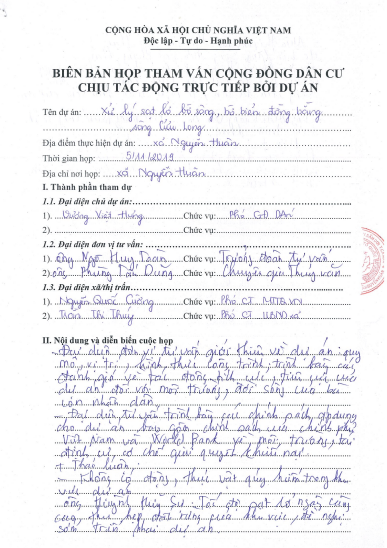 CỘNG HÒA XÃ HỘI CHỦ NGHĨA VIỆT NAM
Độc lập - Tự do - Hạnh phúc
BIÊN BẢN HỌP THAM VẤN CỘNG ĐỒNG DÂN CƯ
CHỊU TÁC ĐỘNG TRỰC TIẾP BỞI DỰ ÁN
Tên dự án: Xử lý sạt lở bờ sông, bờ biển đồng bằng
sông Cửu Long
Địa điểm thực hiện dự án: xã Nguyễn Huân
Thời gian họp: 5/11/2019
Địa chỉ nơi họp: xã Nguyễn Huân
I. Thành phần tham dự
1.1. Đại diện chủ dự án:
1) Dương Việt Hưng Chức vụ: Phó GĐ DAN
2) Chức vụ:
1.2. Đại diện đơn vị tư vấn:
1) Ông Ngô Huy Toàn Chức vụ: Trưởng đoàn tư vấn
2) Ông Phùng Tấn Dung Chức vụ: Chuyên gia Thủy văn
1.3. Đại diện xã/thị trấn:
1) Nguyễn Quốc Cường Chức vụ: Phó CT MTTQVN
2) Trần Thị Thủy Chức vụ: Phó CT UBND xã
II. Nội dung và diễn biến cuộc họp
- Đại diện đơn vị tư vấn giới thiệu về dự án: quy
mô, vị trí, hình thức công trình, trình bày các
đánh giá về tác động tích cực, tiêu cực của
dự án đối với môi trường, đời sống của bà
con nhân dân
- Đại diện tư vấn trình bày các chính sách áp dụng
cho dự án bao gồm chính sách của chính phủ
Việt Nam và World Bank về môi trường, tái
định cư, cơ chế giải quyết khiếu nại
+ Thảo luận:
- Không có động, thực vật quý hiếm trong khu
vực dự án
- Ông Huỳnh Thủy Sư: Tốc độ sạt lở ngày càng
khu vực, đề nghị
sớm triển khai dự án